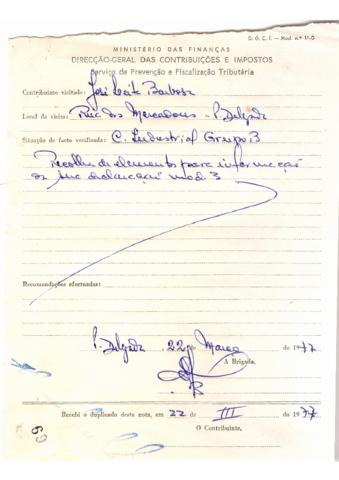 D. G. C. I. — Mod. n.º 11-G
MINISTÉRIO DAS FINANÇAS
DIRECÇÃO-GERAL DAS CONTRIBUIÇÕES E IMPOSTOS
Serviço de Prevenção e Fiscalização Tributária
Contribuinte visitado: José Leite Barbosa
Local da visita: Rua dos Mercadores - P. Delgada
Situação de facto verificada: C. Industrial Grupo B
Recolha de elementos para informação
declaração mod. 3
Recomendações efectuadas:
P. Delgada 22 de Março de 1977
A Brigada,
Recebi o duplicado desta nota, em 22 de III de 1977
O Contribuinte,
69